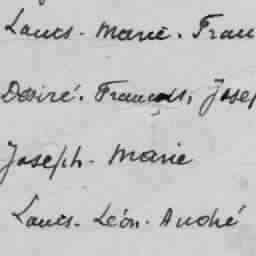 Louis - Marie - Fran
Désiré - François, Josep
Joseph - Marie
Louis - Léon - André